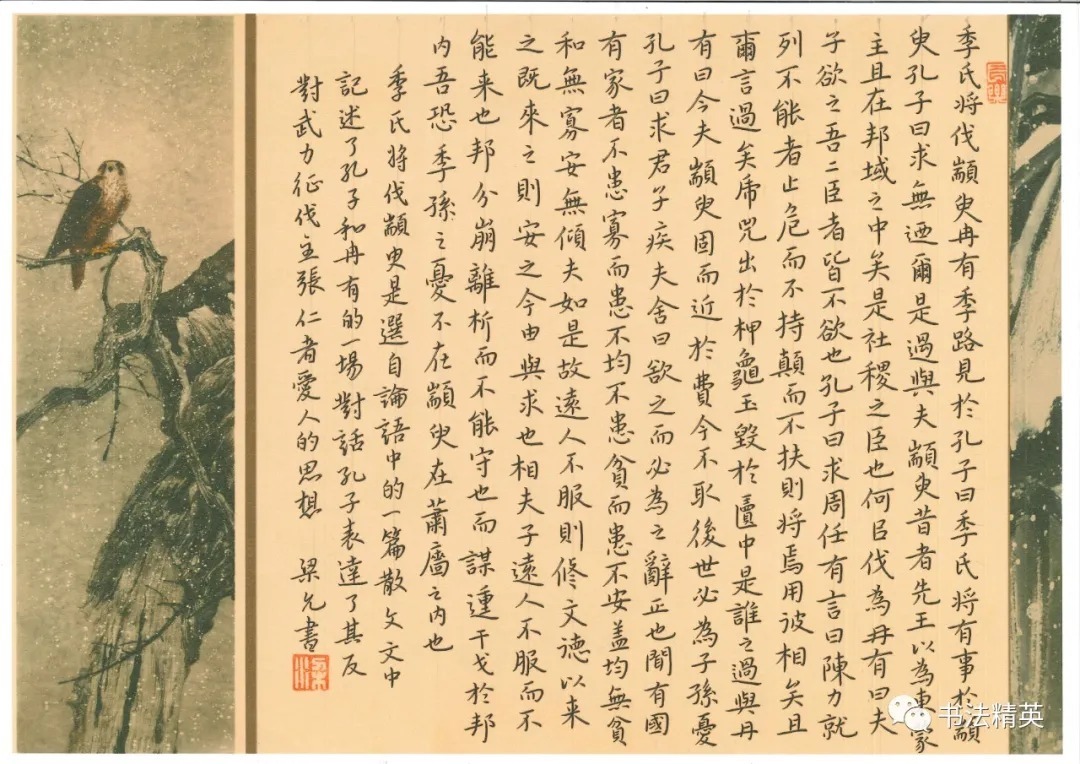 季氏将伐顓臾冉有季路見於孔子曰季氏将有事於顓
臾孔子曰求無迺爾是過與夫顓臾昔者先王以為東蒙
主且在邦域之中矣是社稷之臣也何以伐為冉有曰夫
子欲之吾二臣者皆不欲也孔子曰求周任有言曰陳力就
列不能者止危而不持顛而不扶則将焉用彼相矣且
爾言過矣虎兕出於柙龜玉毀於匵中是誰之過與冉
有曰今夫顓臾固而近於費今不取後世必為子孫憂
孔子曰求君子疾夫舍曰欲之而必為之辭丘也聞有國
有家者不患寡而患不均不患貧而患不安盖均無貧
和無寡安無傾夫如是故遠人不服則修文德以来
之既來之則安之今由與求也相夫子遠人不服而不
能来也邦分崩離析而不能守也而謀動干戈於邦
内吾恐季孫之憂不在顓臾在蕭牆之内也
季氏将伐顓臾是選自論語中的一篇散文文中
記述了孔子和冉有的一場對話孔子表達了其反
對武力征伐主張仁者愛人的思想 梁允書
书法精英